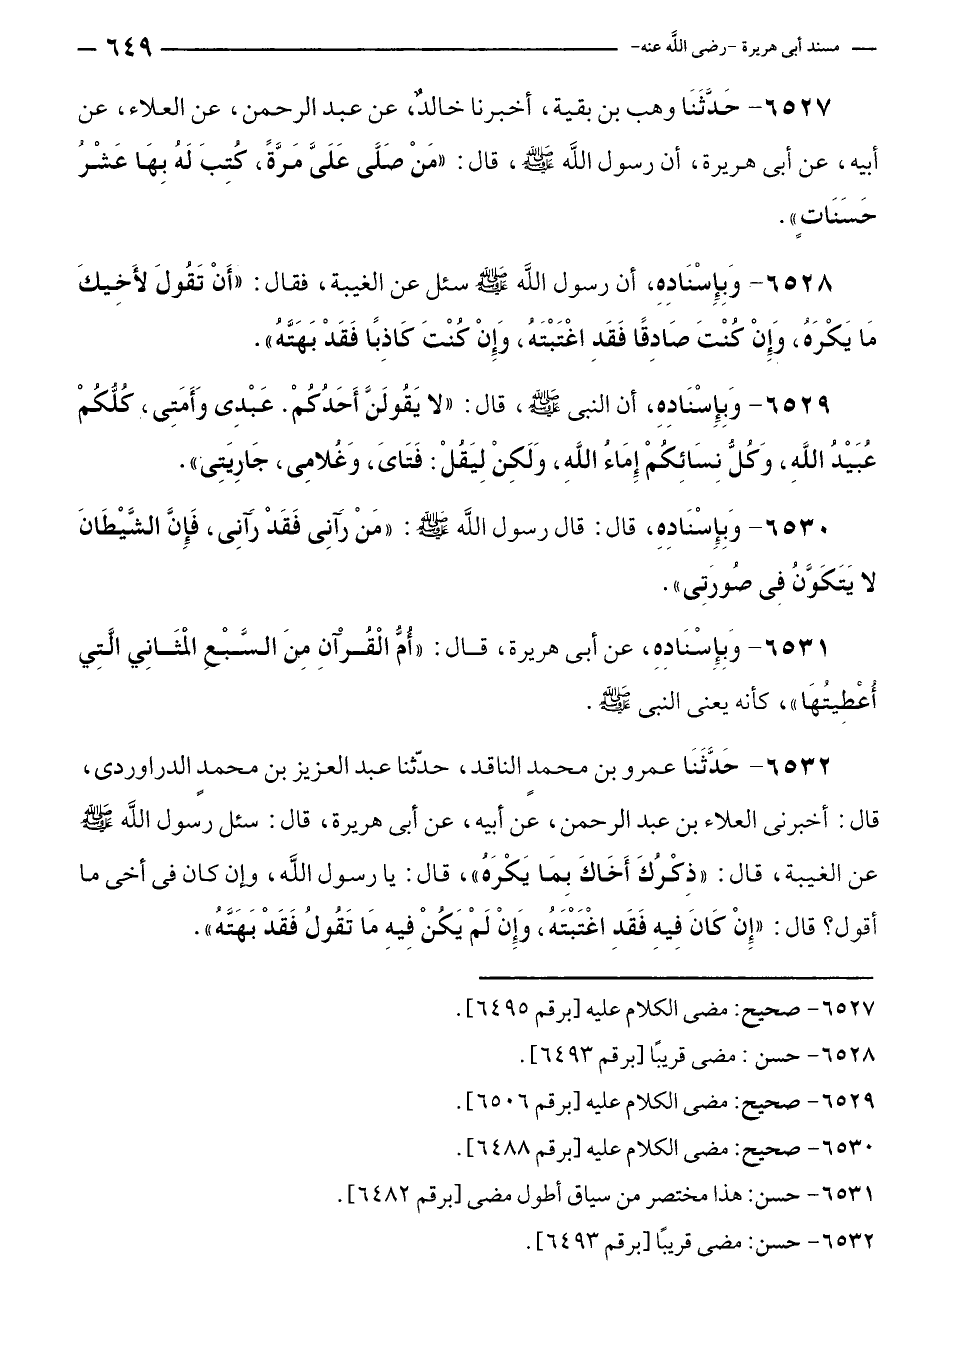 — مسند أبى هريرة -رضى اللَّه عنه- — ٦٤٩ —
٦٥٢٧- حَدَّثَنَا وهب بن بقية، أخبرنا خالدٌ، عن عبد الرحمن، عن العلاء، عن
أبيه، عن أبى هريرة، أن رسول اللَّه ﷺ، قال: «مَنْ صَلَّى عَلَىَّ مَرَّةً، كُتِبَ لَهُ بِهَا عَشْرُ
حَسَنَاتٍ».
٦٥٢٨- وَبِإِسْنَادِهِ، أن رسول اللَّه ﷺ سئل عن الغيبة، فقال: «أَنْ تَقُولَ لأَخِيكَ
مَا يَكْرَهُ، وَإِنْ كُنْتَ صَادِقًا فَقَدِ اغْتَبْتَهُ، وَإِنْ كُنْتَ كَاذِبًا فَقَدْ بَهَتَّهُ».
٦٥٢٩- وَبِإِسْنَادِهِ، أن النبى ﷺ، قال: «لا يَقُولَنَّ أَحَدُكُمْ. عَبْدِى وَأَمَتِى، كُلُّكُمْ
عُبَيْدُ اللَّهِ، وَكُلُّ نِسَائِكُمْ إِمَاءُ اللَّهِ، وَلَكِنْ لِيَقُلْ: فَتَاىَ، وَغُلامِى، جَارِيَتِى».
٦٥٣٠- وَبِإِسْنَادِهِ، قال: قال رسول اللَّه ﷺ: «مَنْ رَآنِى فَقَدْ رَآنِى، فَإِنَّ الشَّيْطَانَ
لا يَتَكَوَّنُ فِى صُورَتِى».
٦٥٣١- وَبِإِسْنَادِهِ، عن أبى هريرة، قال: «أُمُّ الْقُرْآنِ مِنَ السَّبْعِ الْمَثَانِي الَّتِي
أُعْطِيتُهَا»، كأنه يعنى النبى ﷺ.
٦٥٣٢- حَدَّثَنَا عمرو بن محمدٍ الناقد، حدّثنا عبد العزيز بن محمدٍ الدراوردى،
قال: أخبرنى العلاء بن عبد الرحمن، عن أبيه، عن أبى هريرة، قال: سئل رسول اللَّه ﷺ
عن الغيبة، قال: «ذِكْرُكَ أَخَاكَ بِمَا يَكْرَهُ»، قال: يا رسول اللَّه، وإن كان فى أخى ما
أقول؟ قال: «إِنْ كَانَ فِيهِ فَقَدِ اغْتَبْتَهُ، وَإِنْ لَمْ يَكُنْ فِيهِ مَا تَقُولُ فَقَدْ بَهَتَّهُ».
٦٥٢٧- صحيح: مضى الكلام عليه [برقم ٦٤٩٥].
٦٥٢٨- حسن: مضى قريبًا [برقم ٦٤٩٣].
٦٥٢٩- صحيح: مضى الكلام عليه [برقم ٦٥٠٦].
٦٥٣٠- صحيح: مضى الكلام عليه [برقم ٦٤٨٨].
٦٥٣١- حسن: هذا مختصر من سياق أطول مضى [برقم ٦٤٨٢].
٦٥٣٢- حسن: مضى قريبًا [برقم ٦٤٩٣].